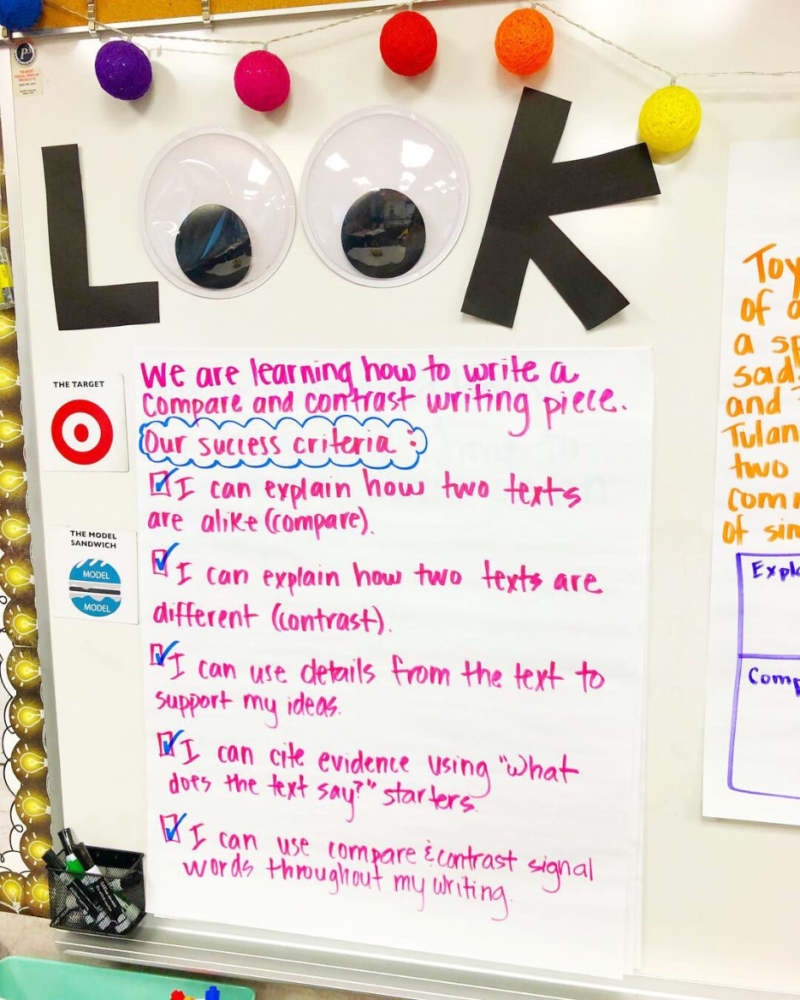 LOOK
THE TARGET
We are learning how to write a
compare and contrast writing piece.
Our success criteria:
I can explain how two texts
are alike (compare).
I can explain how two texts are
different (contrast).
I can use details from the text to
support my ideas.
I can cite evidence using "what
does the text say?" starters.
I can use compare & contrast signal
words throughout my writing.
THE MODEL
SANDWICH
MODEL
MODEL
Toy
of
a sp
sad
and T
Tulan
two
comm
of sim
Expla
Comp